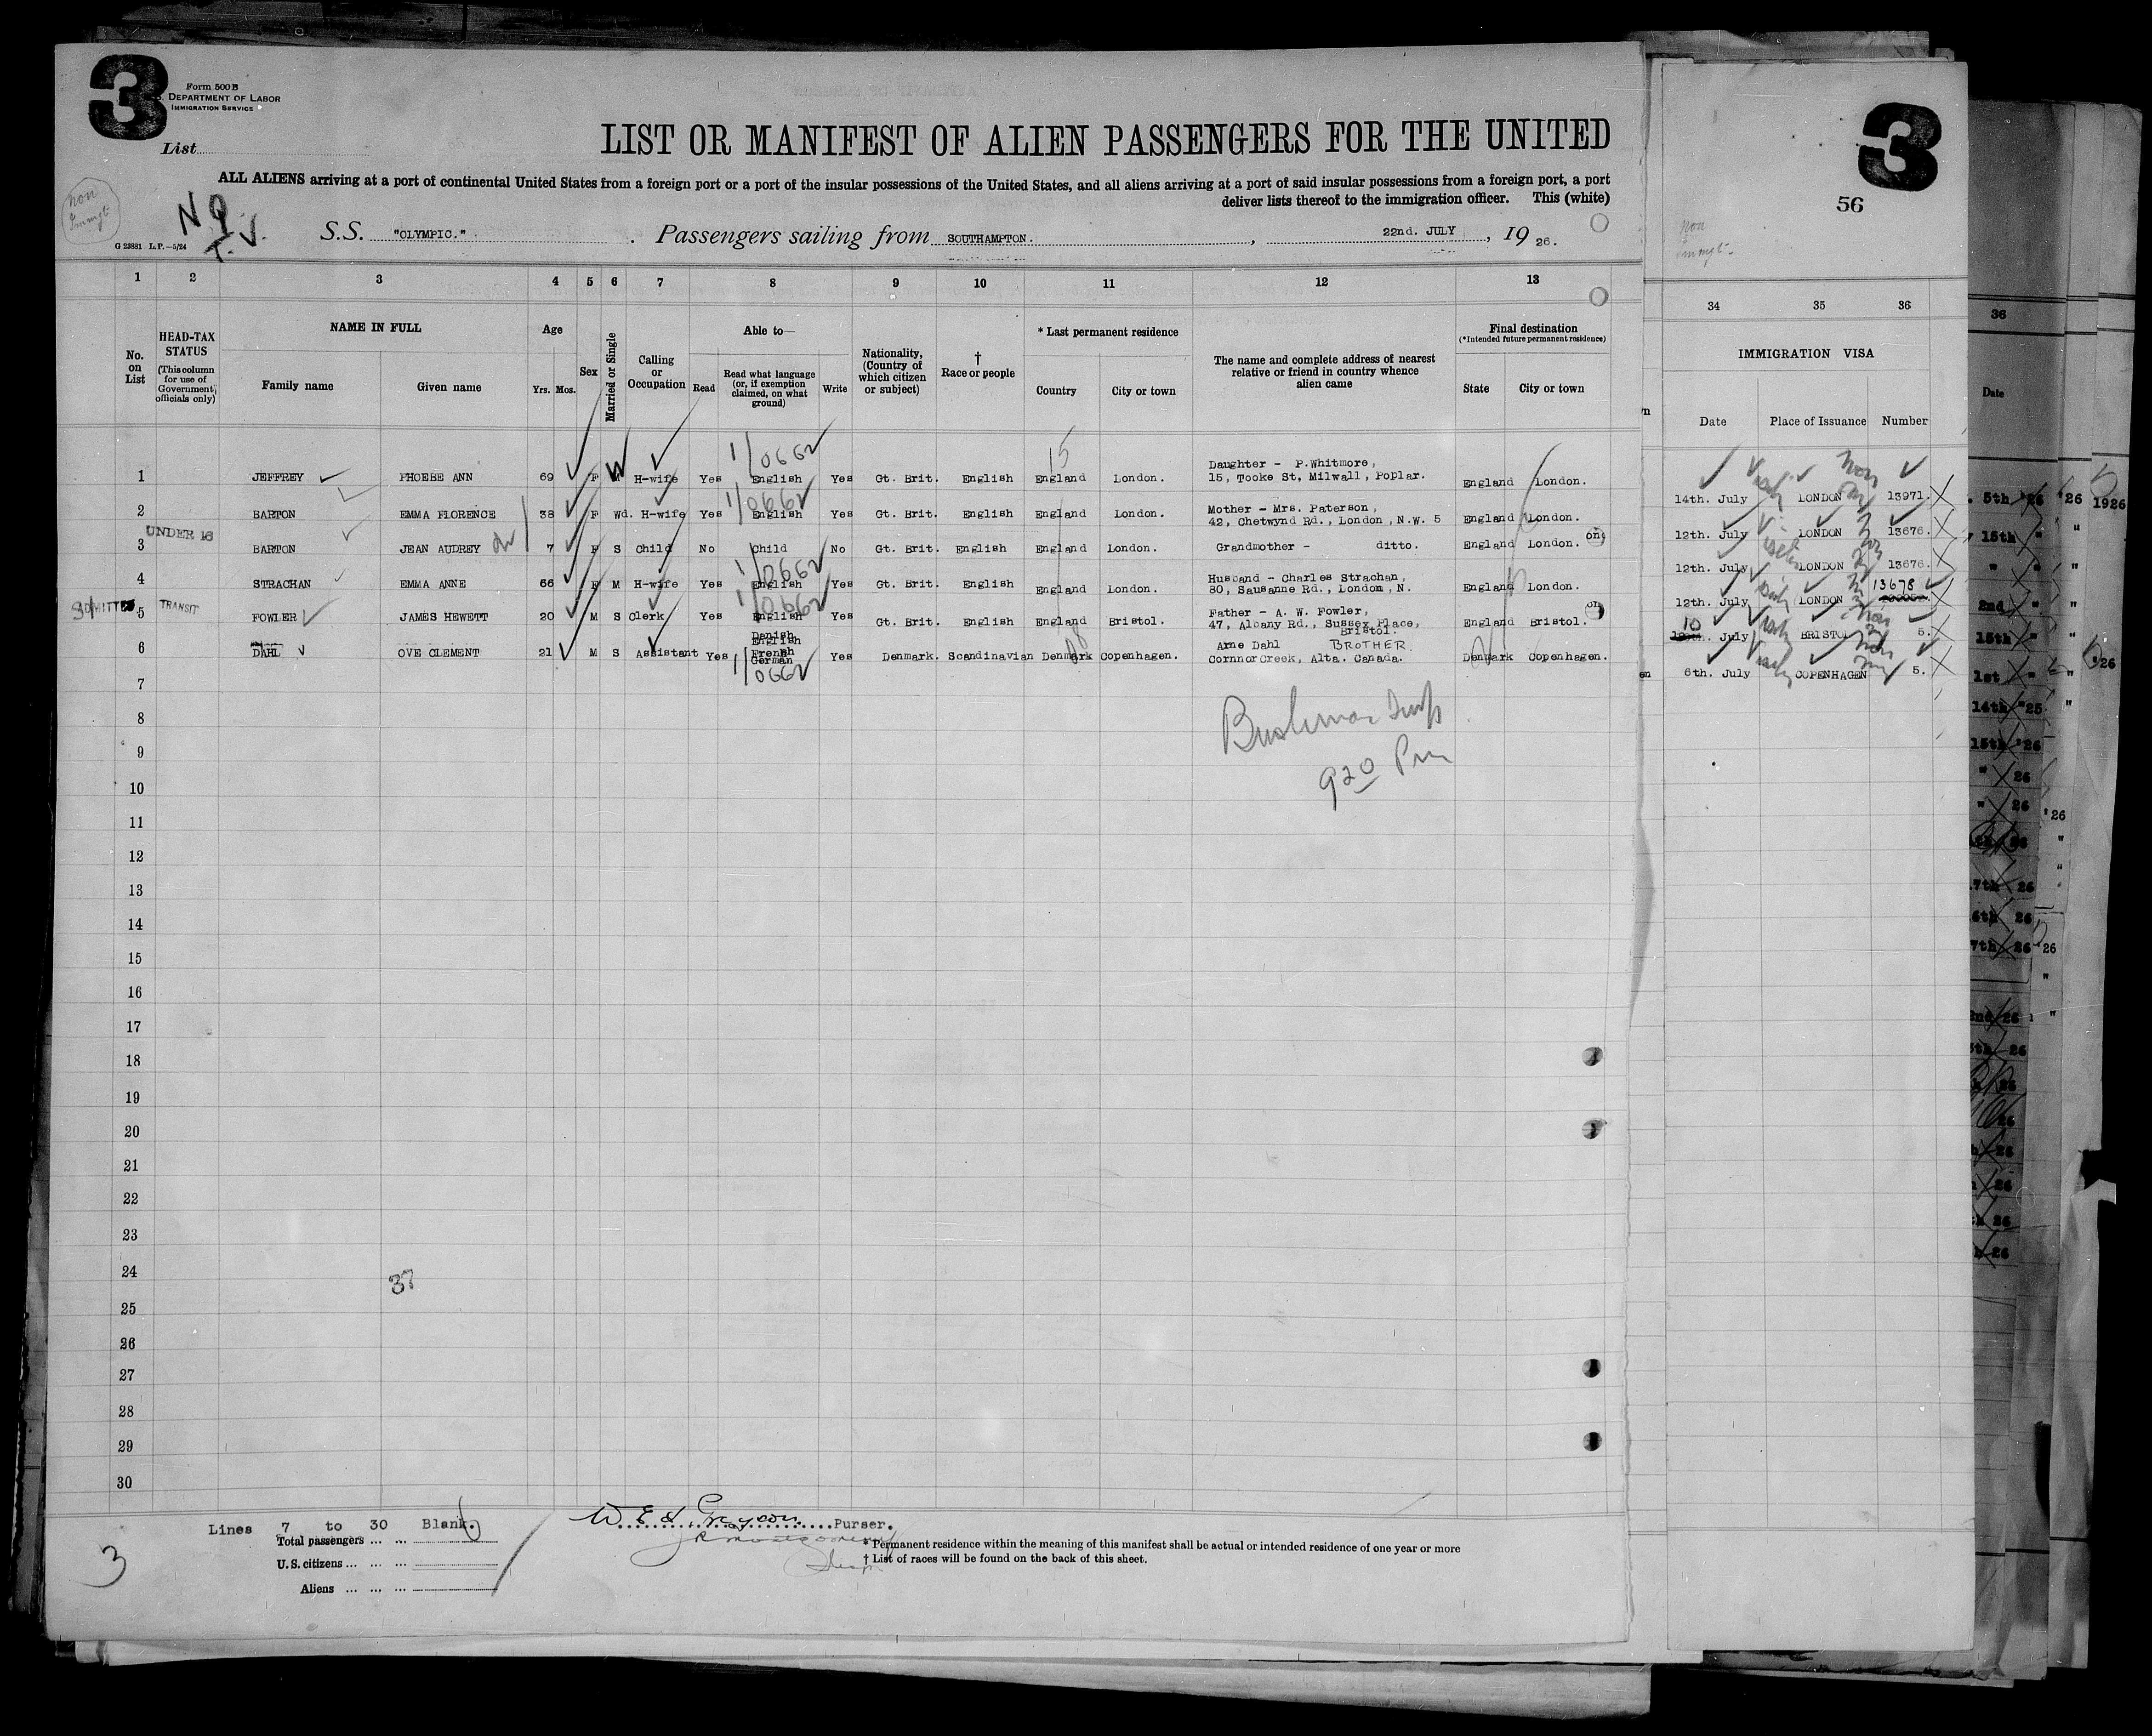 3
Form 500 B
DEPARTMENT OF LABOR
IMMIGRATION SERVICE
List
LIST OR MANIFEST OF ALIEN PASSENGERS FOR THE UNITED
ALL ALIENS arriving at a port of continental United States from a foreign port or a port of the insular possessions of the United States, and all aliens arriving at a port of said insular possessions from a foreign port, a port
deliver lists thereof to the immigration officer. This (white)
non immgt
G 23881 L.P.—5/24
S.S. "OLYMPIC." Passengers sailing from SOUTHAMPTON. , 22nd. JULY , 19 26.
1 2 3 4 5 6 7 8 9 10 11 12 13
No. on List
HEAD-TAX STATUS (This column for use of Government officials only)
NAME IN FULL
Family name Given name
Age
Yrs. Mos.
Sex
Married or Single
Calling or Occupation
Able to—
Read Read what language (or, if exemption claimed, on what ground) Write
Nationality, (Country of which citizen or subject)
† Race or people
* Last permanent residence
Country City or town
The name and complete address of nearest relative or friend in country whence alien came
Final destination
(*Intended future permanent residence)
State City or town
1 JEFFREY PHOEBE ANN 69 F M H-wife Yes English Yes Gt. Brit. English England London. Daughter - P.Whitmore, 15, Tooke St, Milwall, Poplar. England London.
1/0662
15
2 BARTON EMMA FLORENCE 38 F Wd. H-wife Yes English Yes Gt. Brit. English England London. Mother - Mrs. Paterson, 42, Chetwynd Rd., London, N.W. 5 England London.
1/0662
UNDER 16
3 BARTON JEAN AUDREY 7 F S Child No Child No Gt. Brit. English England London. Grandmother - ditto. England London.
4 STRACHAN EMMA ANNE 66 F M H-wife Yes English Yes Gt. Brit. English England London. Husband - Charles Strachan, 80, Sausanne Rd., London, N. England London.
1/0662
ADMITTED TRANSIT
5 FOWLER JAMES HEWETT 20 M S Clerk Yes English Yes Gt. Brit. English England Bristol. Father - A. W. Fowler, 47, Albany Rd., Sussex Place, Bristol. England Bristol.
1/0662
6 DAHL OVE CLEMENT 21 M S Assistant Yes Danish English French German Yes Denmark. Scandinavian Denmark Copenhagen. Arne Dahl BROTHER Cornnor Creek, Alta. Canada. Denmark Copenhagen.
1/0662
7
8
9
10
11
12
13
14
15
16
17
18
19
20
21
22
23
24
25
26
27
28
29
30
920 Pm
37
Lines 7 to 30 Blank.
Total passengers
U.S. citizens
Aliens
3
Purser.
* Permanent residence within the meaning of this manifest shall be actual or intended residence of one year or more
† List of races will be found on the back of this sheet.
3
56
non immgt
34 35 36
IMMIGRATION VISA
Date Place of Issuance Number
14th. July LONDON 13971.
12th. July LONDON 13676.
12th. July LONDON 13676.
12th. July LONDON 13678
10 July BRISTOL 5.
6th. July COPENHAGEN 5.
36
Date
5th '26
15th "
" "
2nd "
15th "
1st "
14th "25
15th '26
" 26
" 26
7th 26
6th 26
7th 26
'26
1926